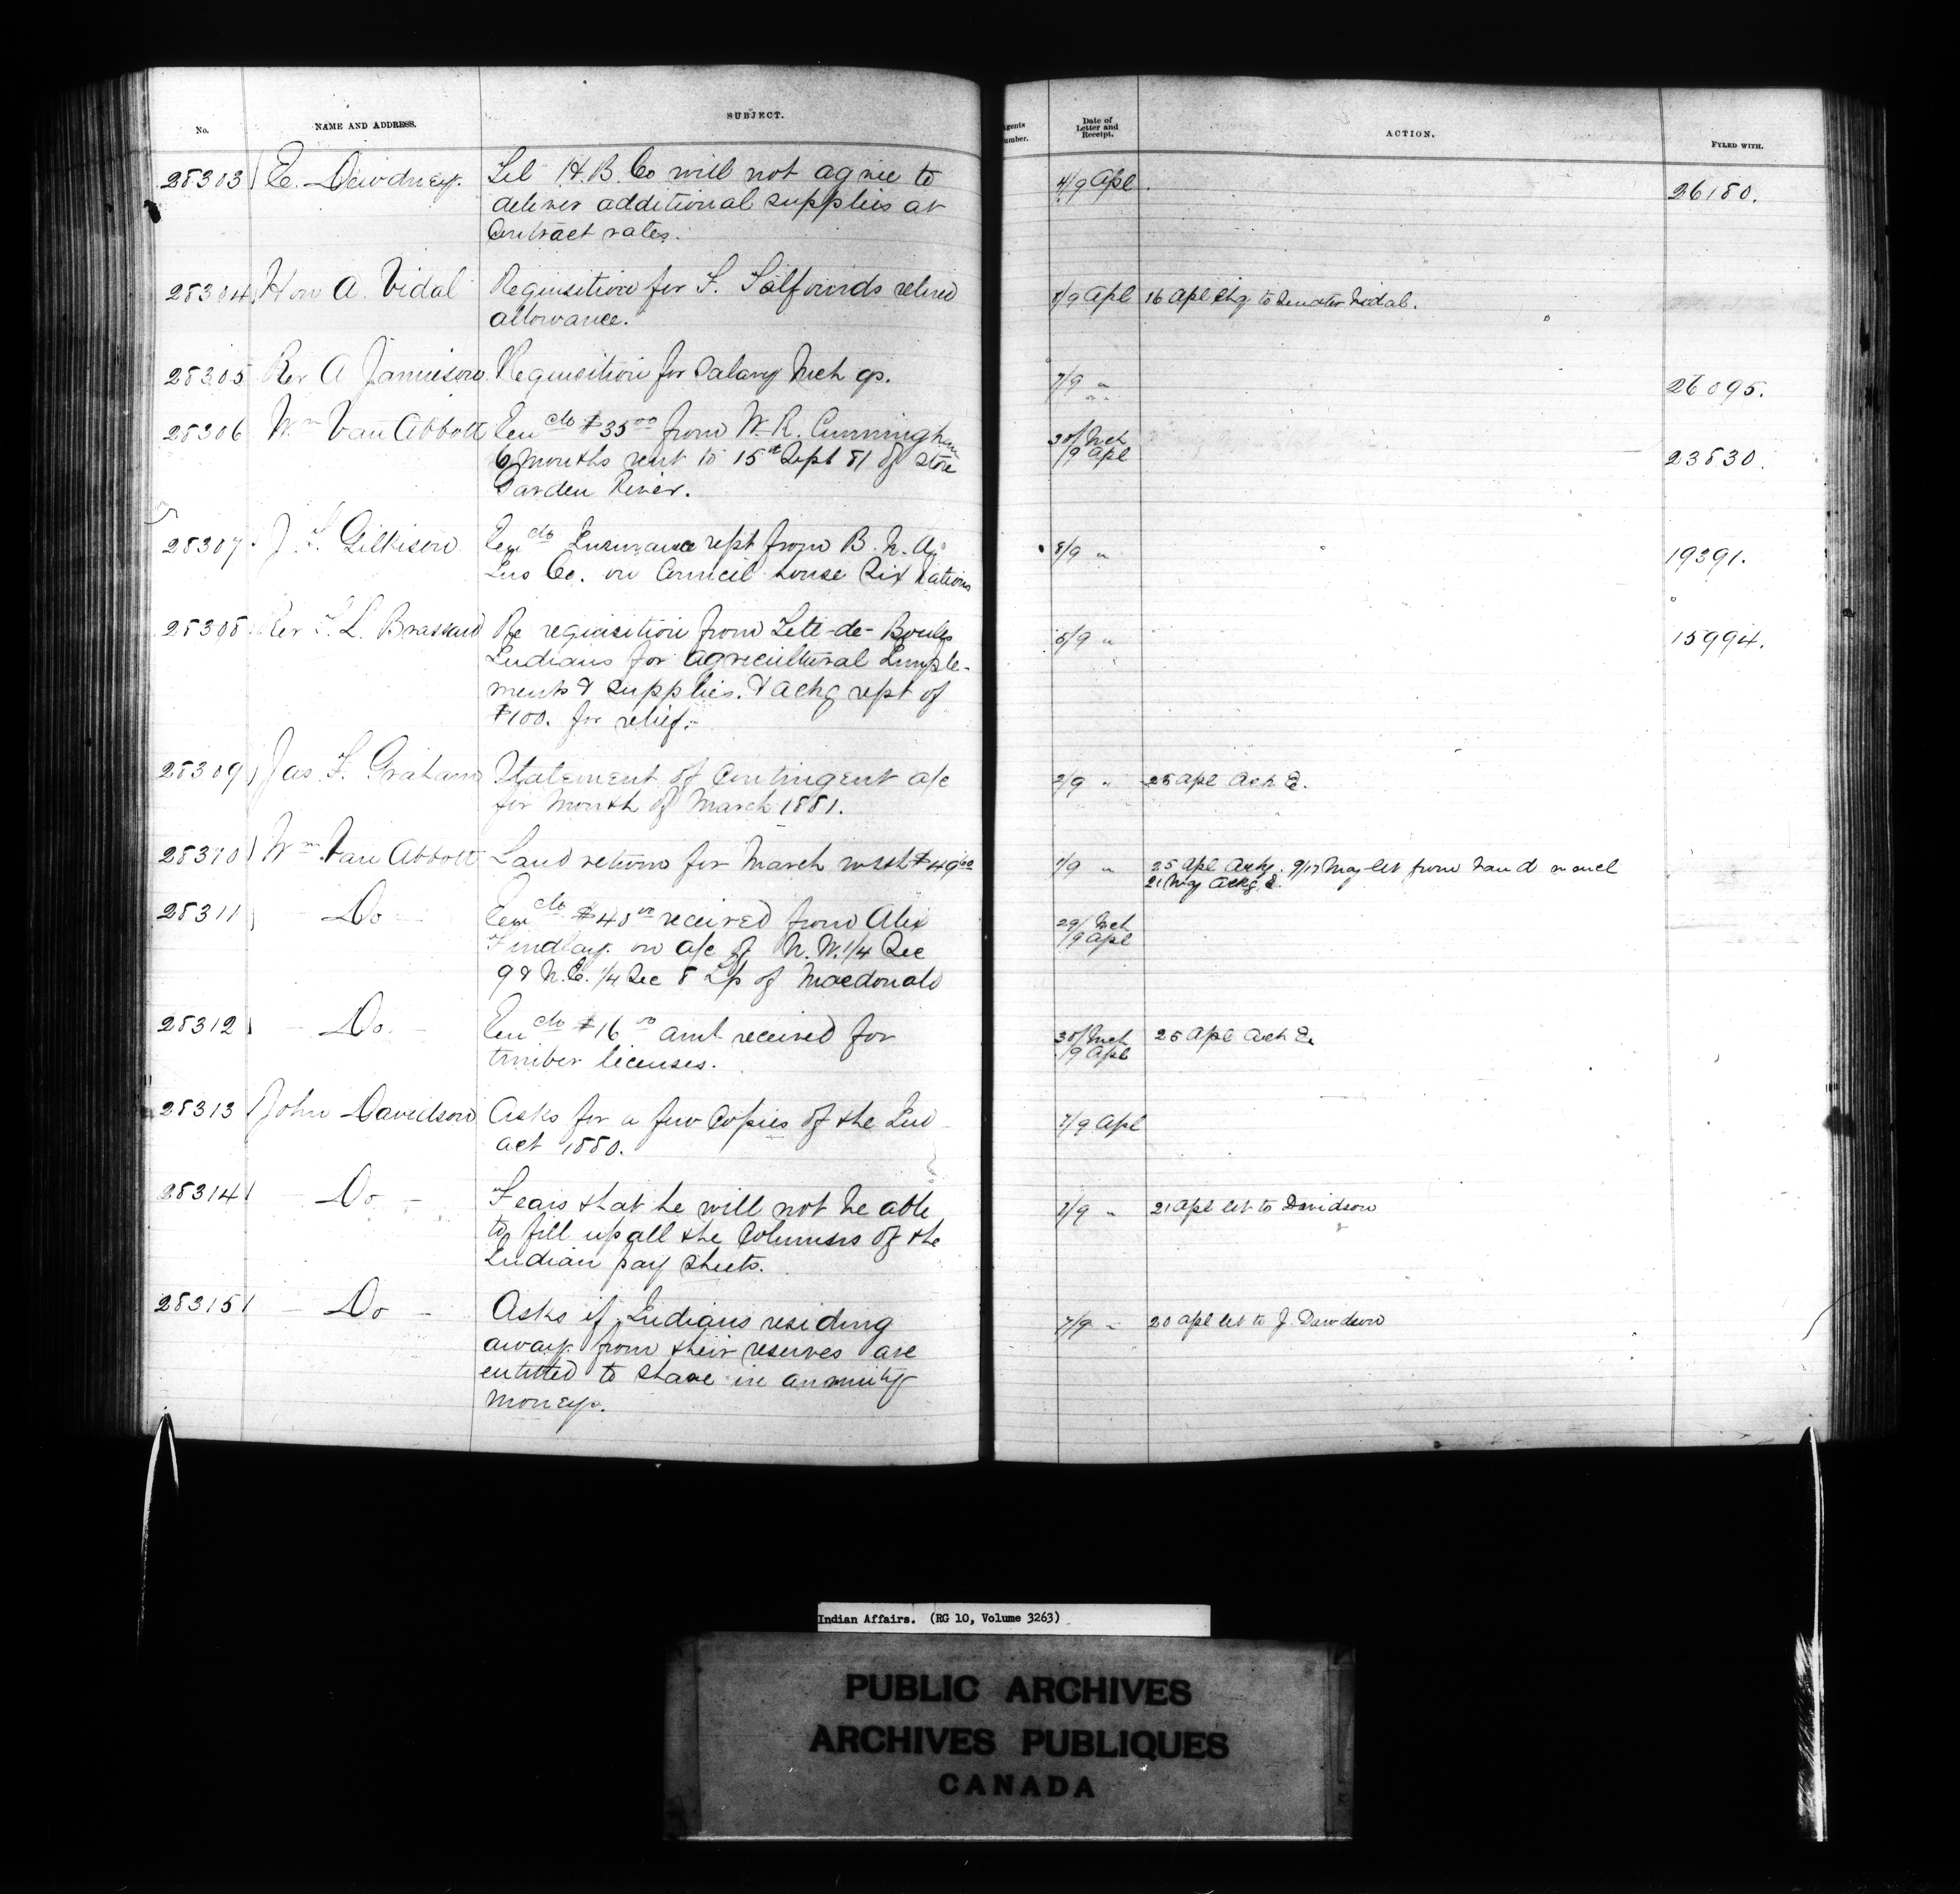 No.
NAME AND ADDRESS.
SUBJECT.
Agents
Number.
Date of
Letter and
Receipt.
ACTION.
FYLED WITH.
28303 E. Dewdney. Tel H.B. Co will not agree to 4/9 Apl. 26180.
deliver additional supplies at
Contract rates.
28304 Hon A. Vidal Requisition for F. Talfourds retired 8/9 Apl 16 Apl chq to Senator Vidal.
allowance.
28305 Rev A Jamieson Requisition for Salary Mch qr. 7/9 " 26095.
28306 Wm Van Abbott Encclo $35 00 from W. R. Cunningham 30/Mch 23830.
6 months rent to 15th Sept 81 of store /9 Apl
Garden River.
28307 J. T. Gilkison Encclo Insurance rept from B. N. A. 8/9 " 19391.
Ins Co. on Council house Six Nations
28308 Rev T. L. Brassard Re requisition from Tete-de-Boules 5/9 " 15994.
Indians for Agricultural Imple-
ments & supplies. & Ackg rept of
$100. for relief.
28309 Jas. F. Graham Statement of Contingent a/c 2/9 " 25 Apl Ack E.
for Month of March 1881.
28310 Wm Van Abbott Land return for March with $49 00 1/9 " 25 Apl Ackg. 9/17 May let from Van d
21 May Ackg E.
28311 Do Encclo $40 00 received from Alex 29/Mch
Findlay. on a/c of N.W. 1/4 Sec /9 Apl
9 & N.E. 1/4 Sec 8 Tp of Macdonald
28312 Do Encclo $16 00 amt received for 30/Mch 25 Apl Ack E.
timber licenses. /9 Apl
28313 John Davidson Asks for a few Copies of the Ind 7/9 Apl
act 1880.
28314 Do Fears that he will not be able 7/9 " 21 Apl let to Davidson
to fill up all the Columns of the
Indian pay sheets.
28315 Do Asks if Indians residing 7/9 " 20 apl let to J. Davidson
away from their reserves are
entitled to share in annuity
money.
Indian Affairs. (RG 10, Volume 3263)
PUBLIC ARCHIVES
ARCHIVES PUBLIQUES
CANADA